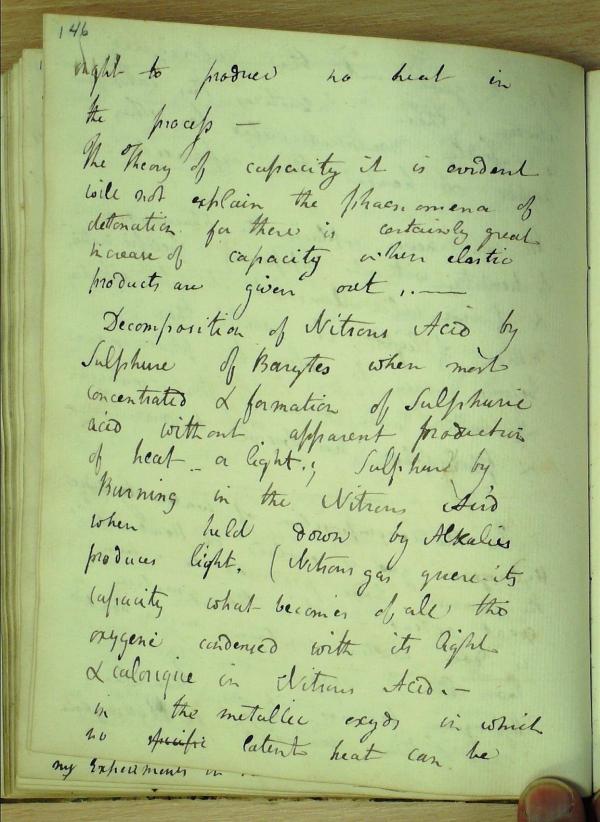 146
ought to produce no heat in
the process —
The Theory of capacity it is evident
will not explain the phaenomena of
detonation for there is certainly great
increase of capacity when elastic
products are given out . . —
Decomposition of Nitrous Acid by
Sulphure of Barytes when most
concentrated & formation of Sulphuric
acid without apparent production
of heat – or light. ; Sulphure by
Burning in the Nitrous Acid
when held down by Alkalies
produces light. ( Nitrous gas quere its
capacity what becomes of all the
oxygene condensed with its light
& calorique in Nitrous Acid. —
in the metallic oxyds in which
no specific latent heat can be
my Experiments on